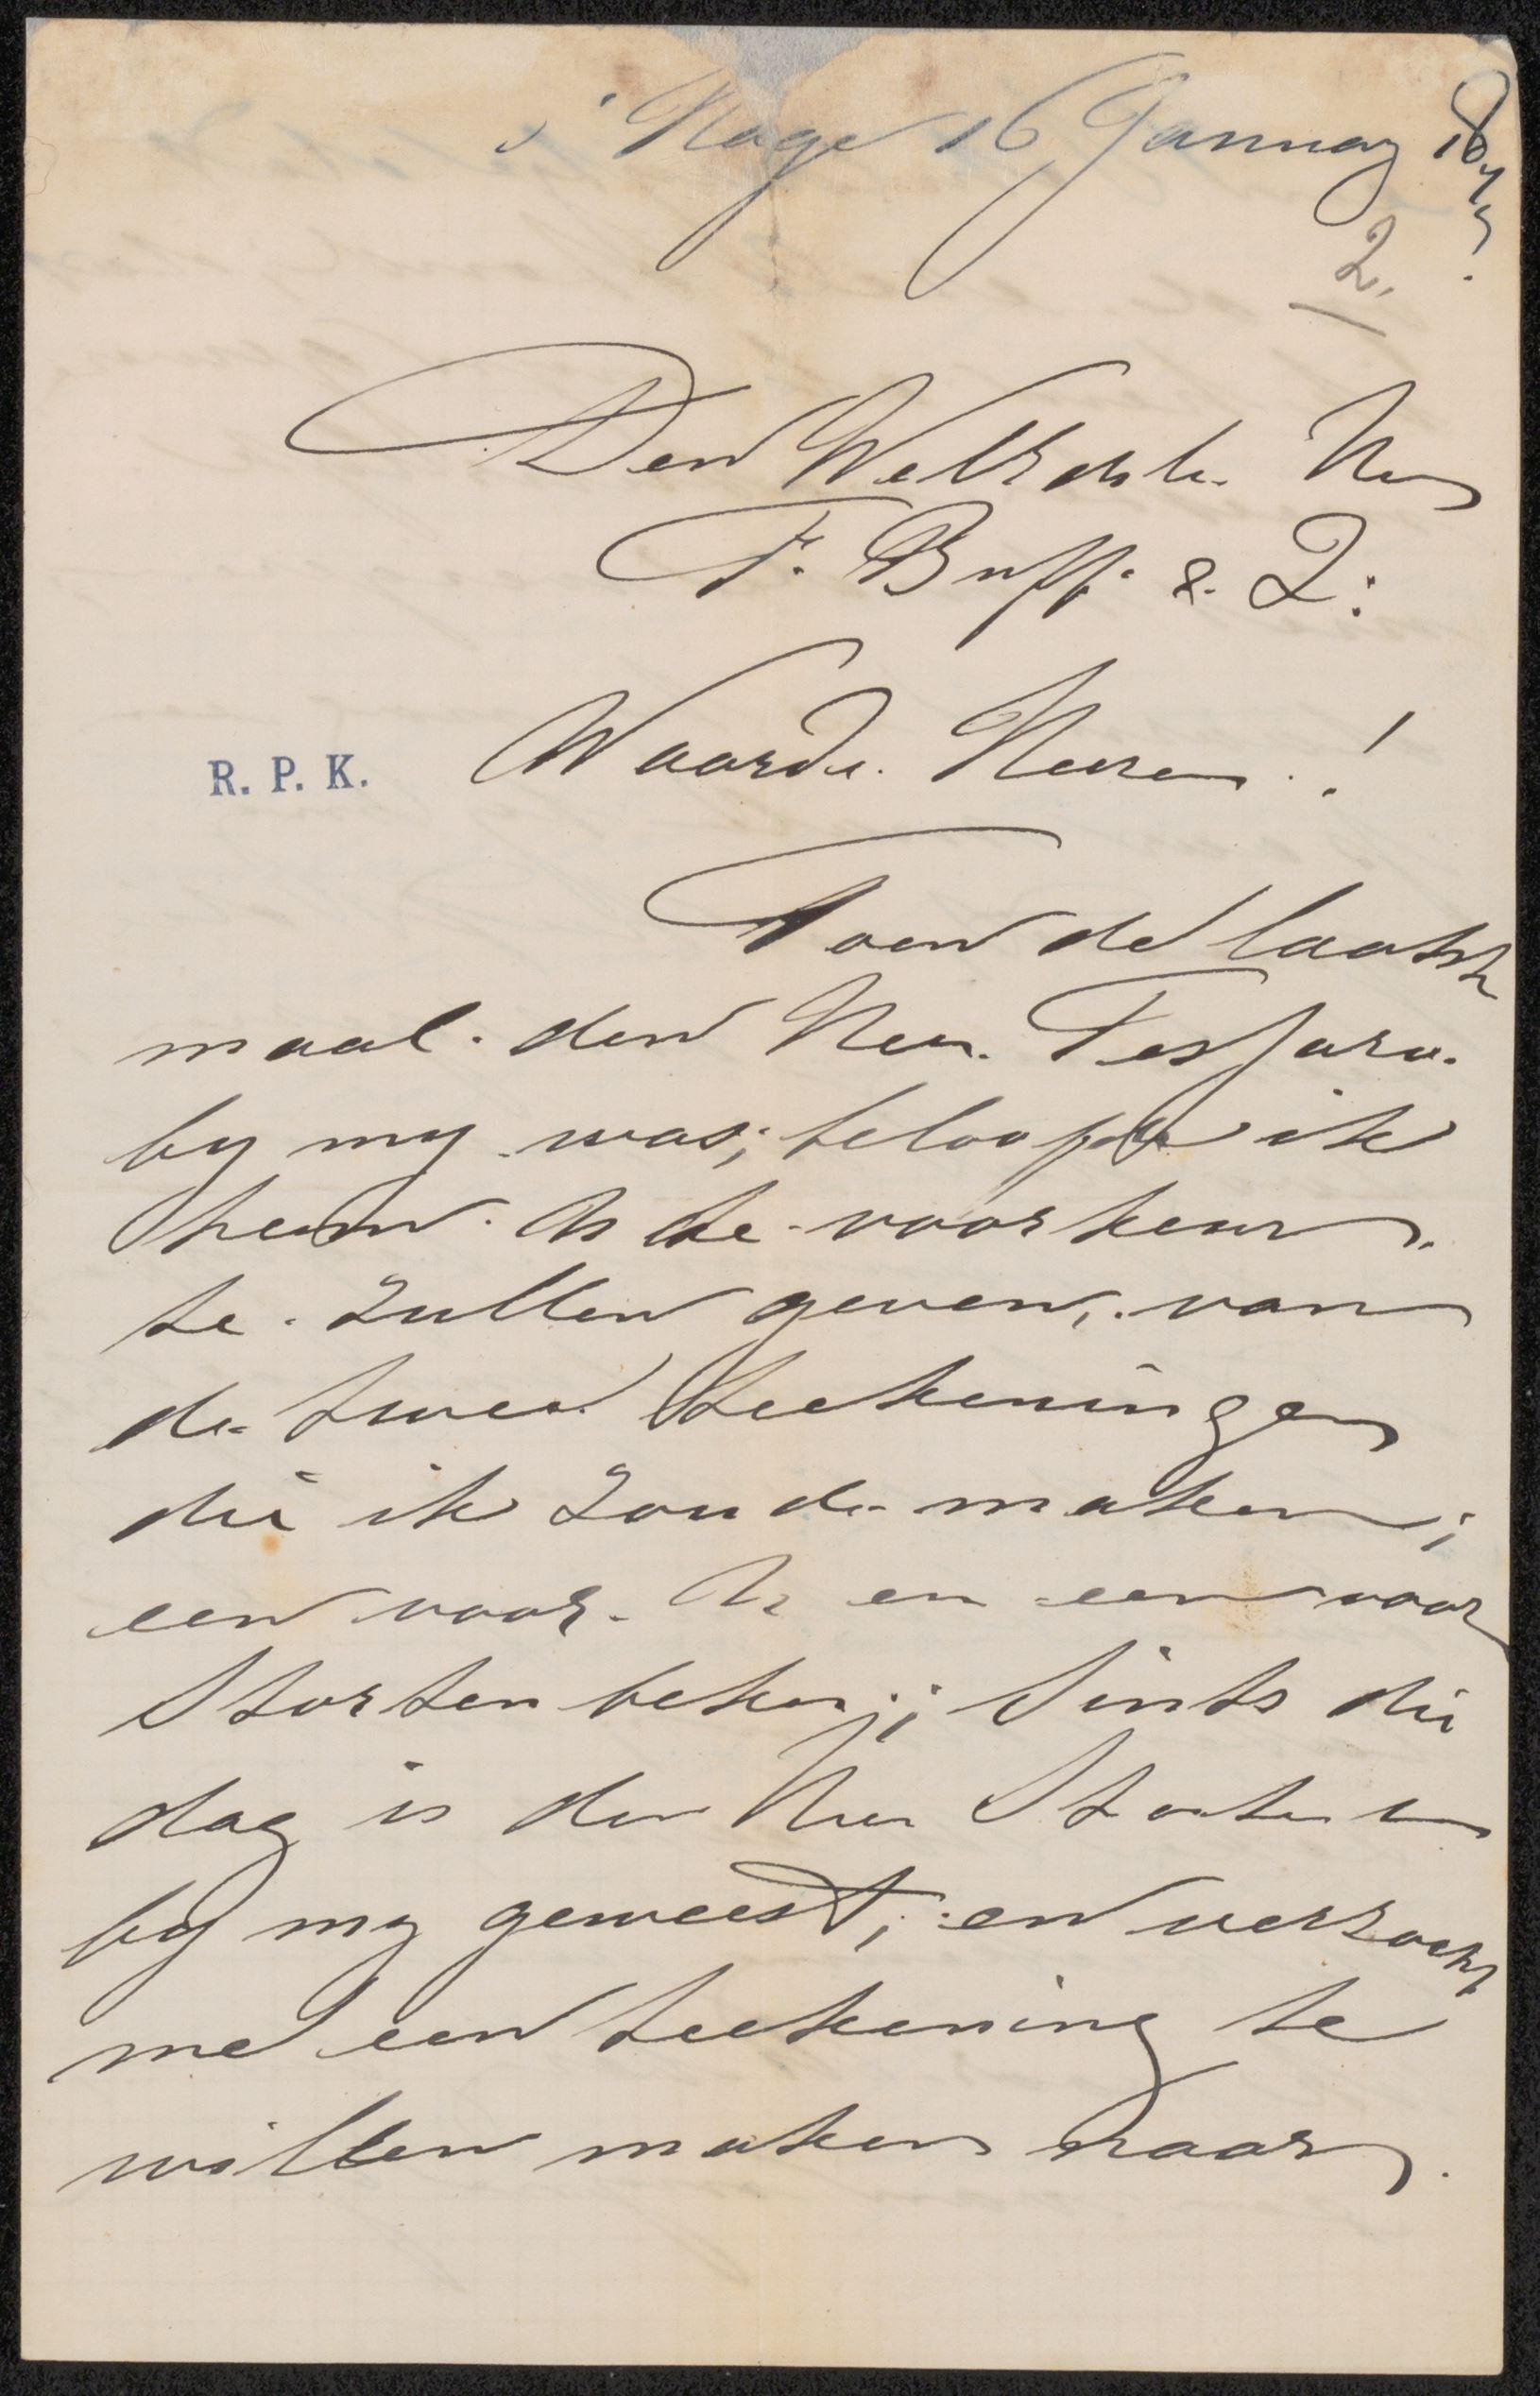 s' Hage 16 January 1877.
2.
Den WelEdele Heer
F. Buffa & Z:
Waarde Heeren !
R. P. K.
Toen de laatste
maal. den Heer. Tessaro.
by my was; beloofde ik
hem. U de voorkeur.
te. zullen geven, van
de twee teekeningen
die ik zoude maken;
een voor. U en een voor
Stortenbeker; Sints die
dag is den Heer Storten
by my geweest, en verzocht
me een teekening te
willen maken naar.